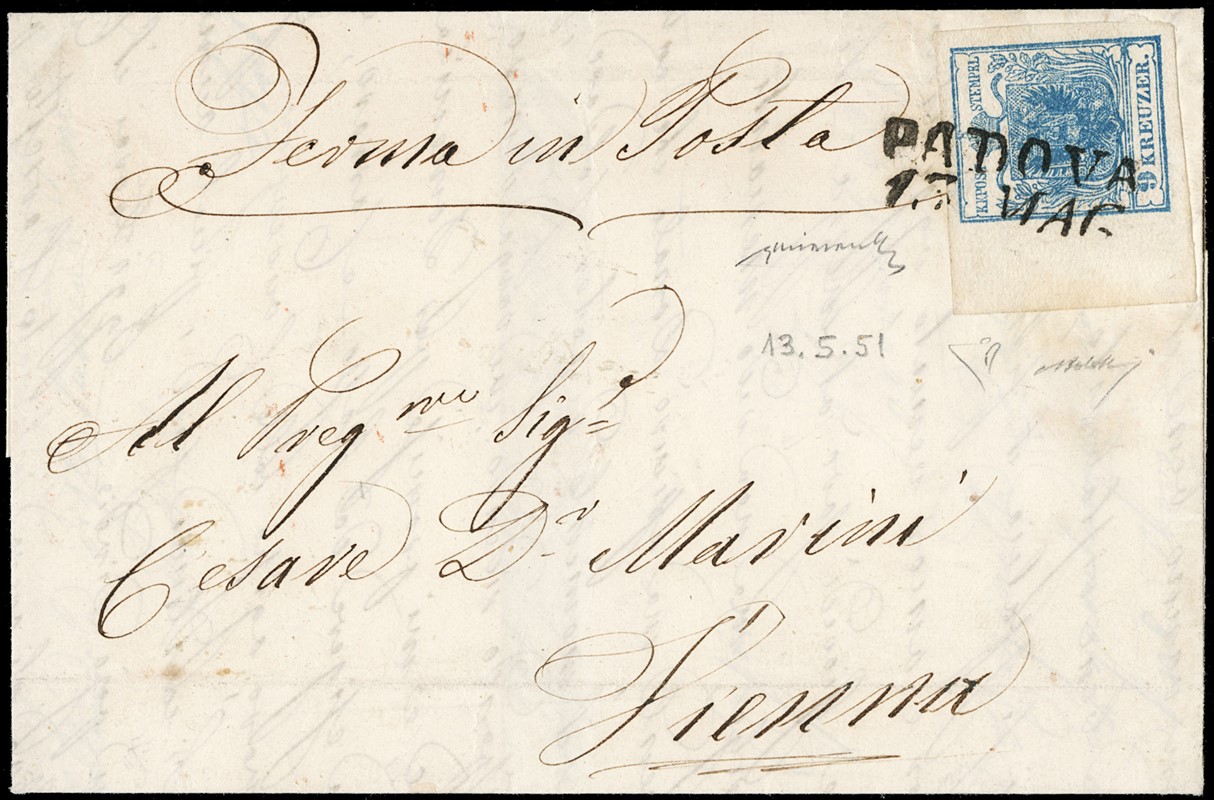 Ferma in Posta
KK POST-STEMPEL
9 KREUZER.
PADOVA
MAG
13.5.51
Al Preg.mo Sig.r
Cesare D.r Marini
Vienna